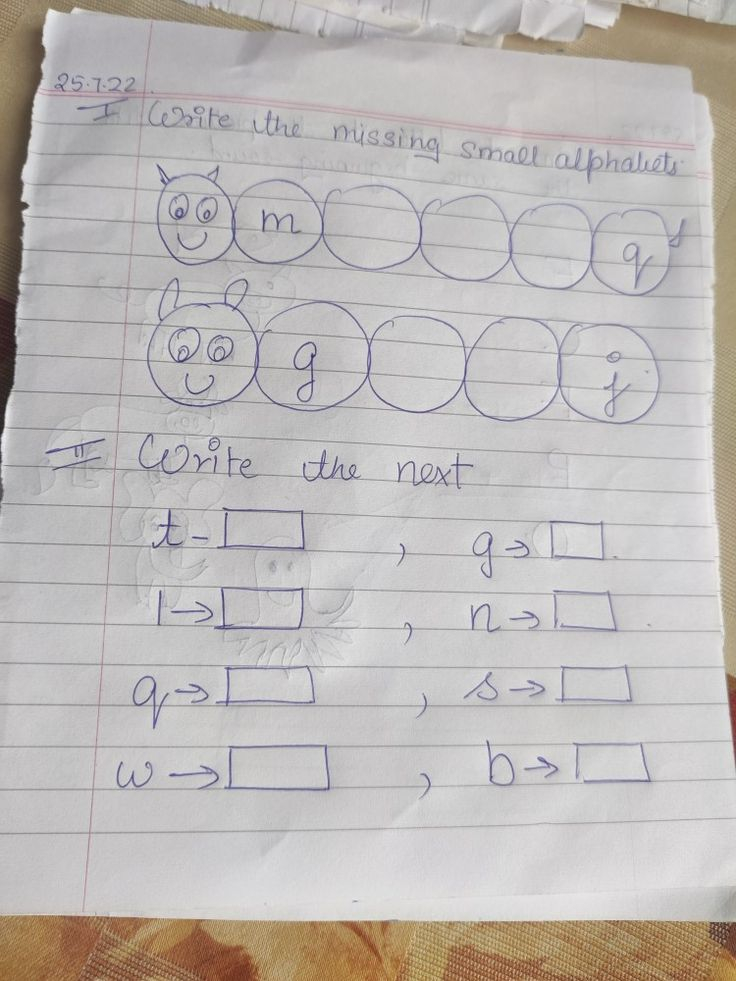 25.7.22
I Write the missing small alphabets.
m q
g j
II Write the next
t - , g → .
l → , n → .
q → , s →
w → , b →